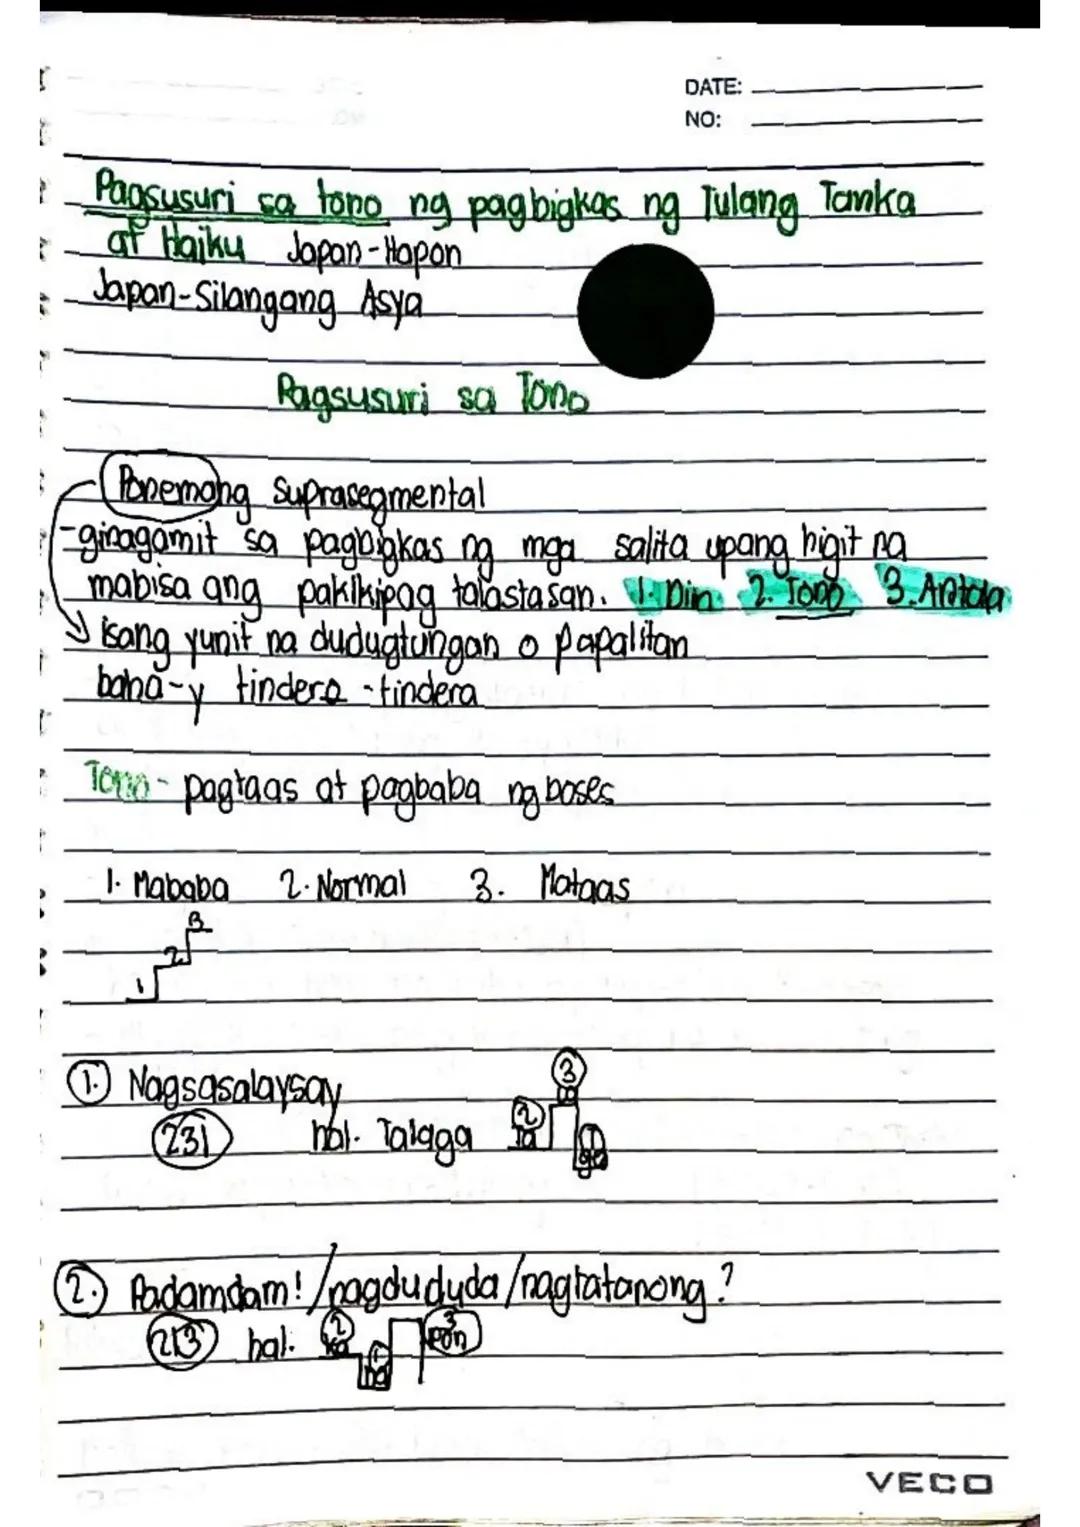 DATE:
NO:
Pagsusuri sa tono ng pagbigkas ng Tulang Tanka
at Haiku Japan-Hapon
Japan-Silangang Asya
Pagsusuri sa Tono
Ponemang Suprasegmental
-ginagamit sa pagbigkas ng mga salita upang higit na
mabisa ang pakikipag talastasan. 1. Diin 2. Tono 3. Antala
isang yunit na dudugtungan o papalitan
baha-y tindero -tindera
Tono- pagtaas at pagbaba ng boses
1. Mababa 2. Normal 3. Mataas
3
2
1
1. Nagsasalaysay
3
231 hal. Talaga 2 ta la 1 ga
2. Padamdam! /nagdududa/nagtatanong?
213 hal. 2 ka 1 ha 3 pon
VECO